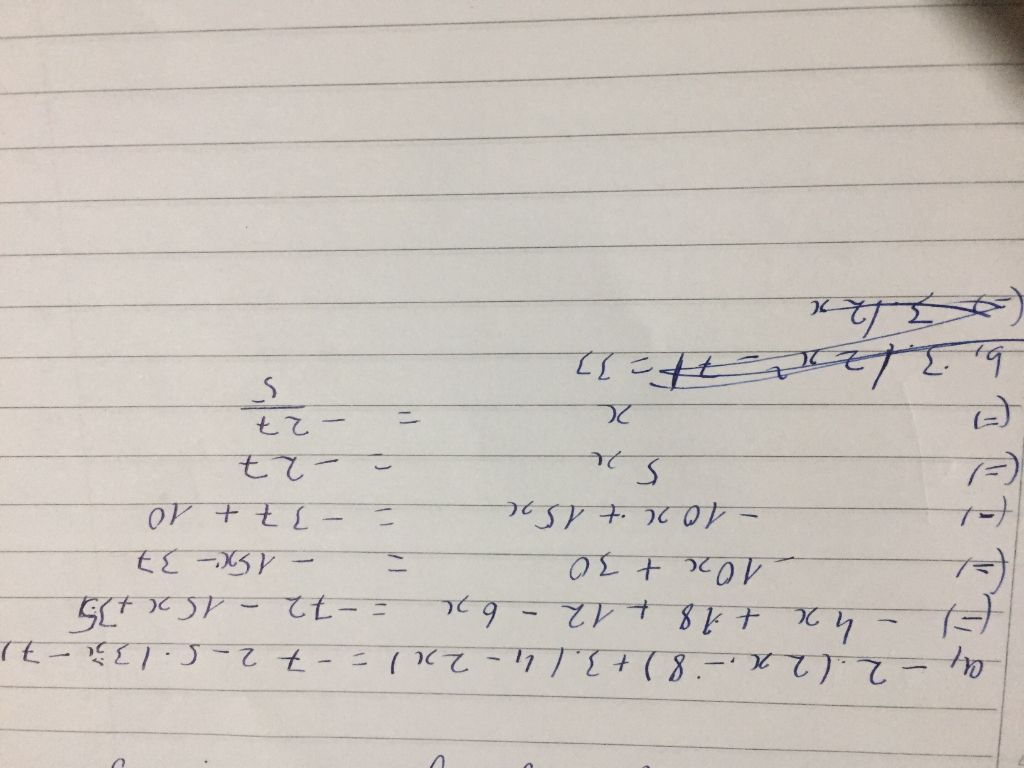 a, - 2.(2x - 8) + 3.(4 - 2x) = -72 - 5.(3x - 7)
(=) - 4x + 18 + 12 - 6x = -72 - 15x + 35
(=) -10x + 30 = - 15x - 37
(=) -10x + 15x = - 37 + 10
(=) 5x = - 27
(=) x = - 27/5
b, 3.(2x - 7) = 33
(=) 3(2x